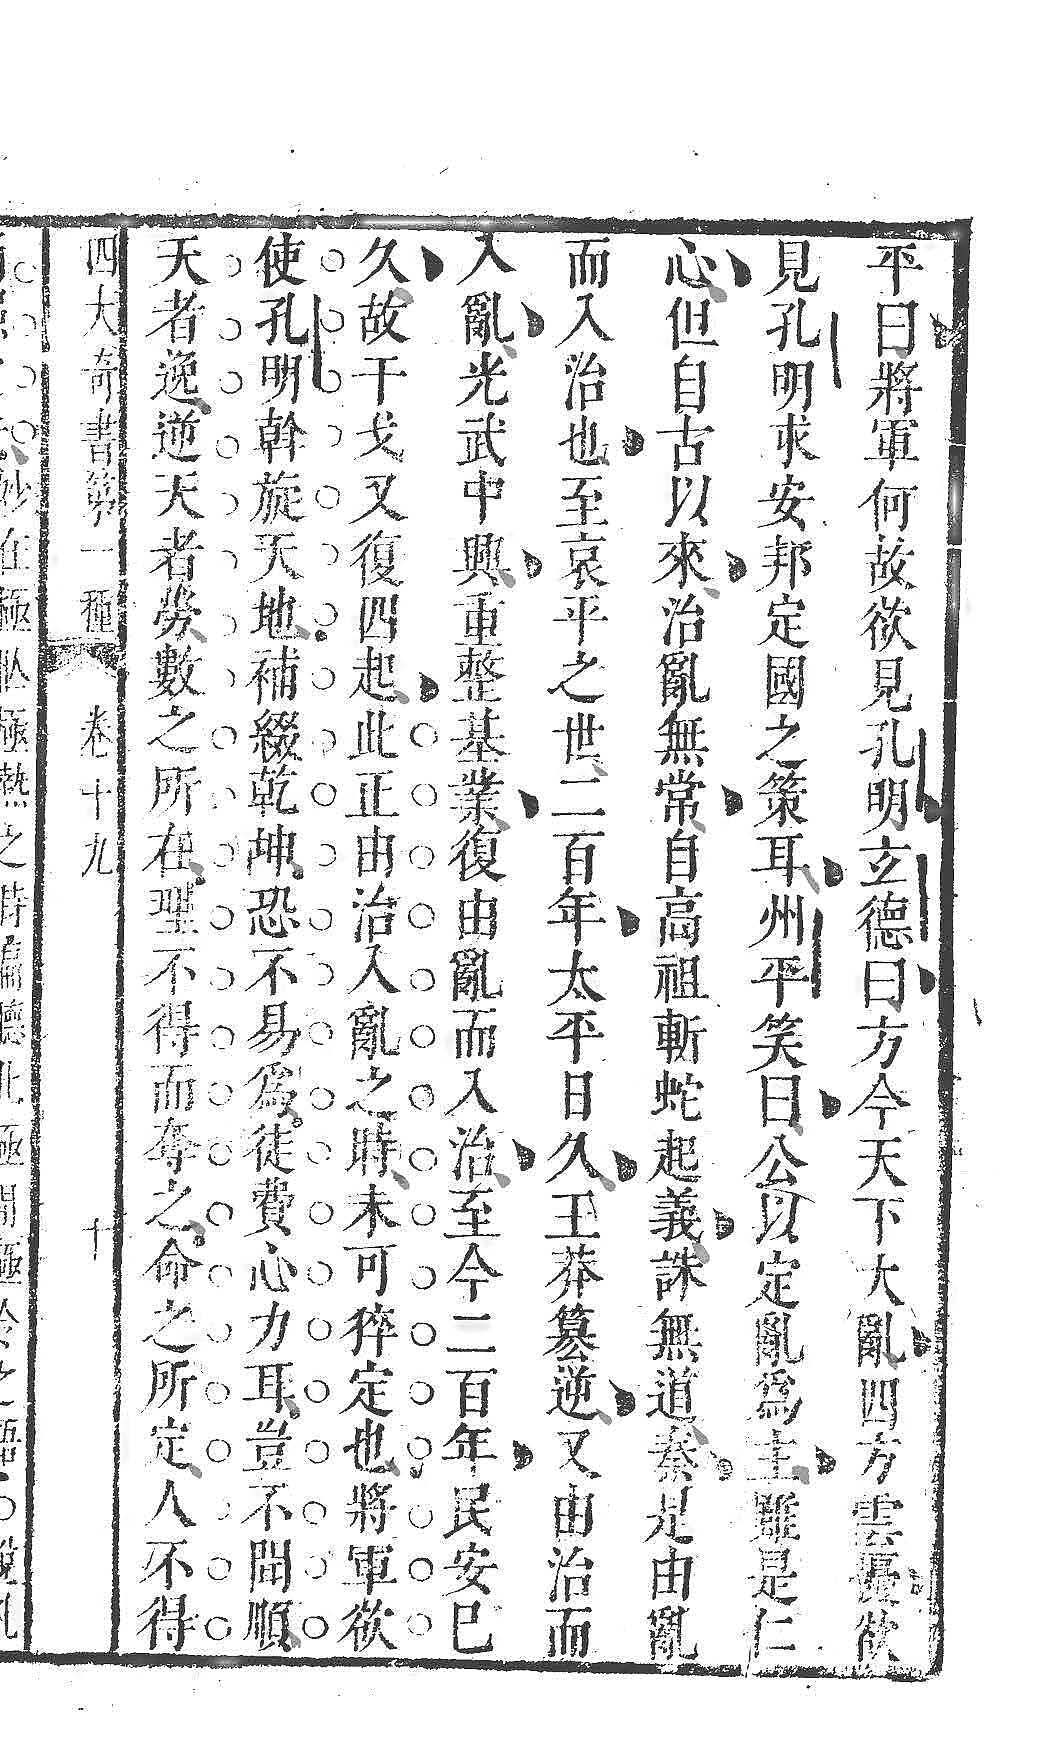 平曰將軍何故欲見孔明玄德曰方今天下大亂四方雲擾欲
見孔明求安邦定國之策耳州平笑曰公以定亂爲主雖是仁
心但自古以來治亂無常自高祖斬蛇起義誅無道秦是由亂
而入治也至哀平之世二百年太平日久王莽篡逆又由治而
入亂光武中興重整基業復由亂而入治至今二百年民安已
久故干戈又復四起此正由治入亂之時未可猝定也將軍欲
使孔明斡旋天地補綴乾坤恐不易爲徒費心力耳豈不聞順
天者逸逆天者勞數之所在理不得而奪之命之所定人不得
四大奇書第一種 卷十九 十
妙在極 極熱之時偏聽 極閒極冷之語